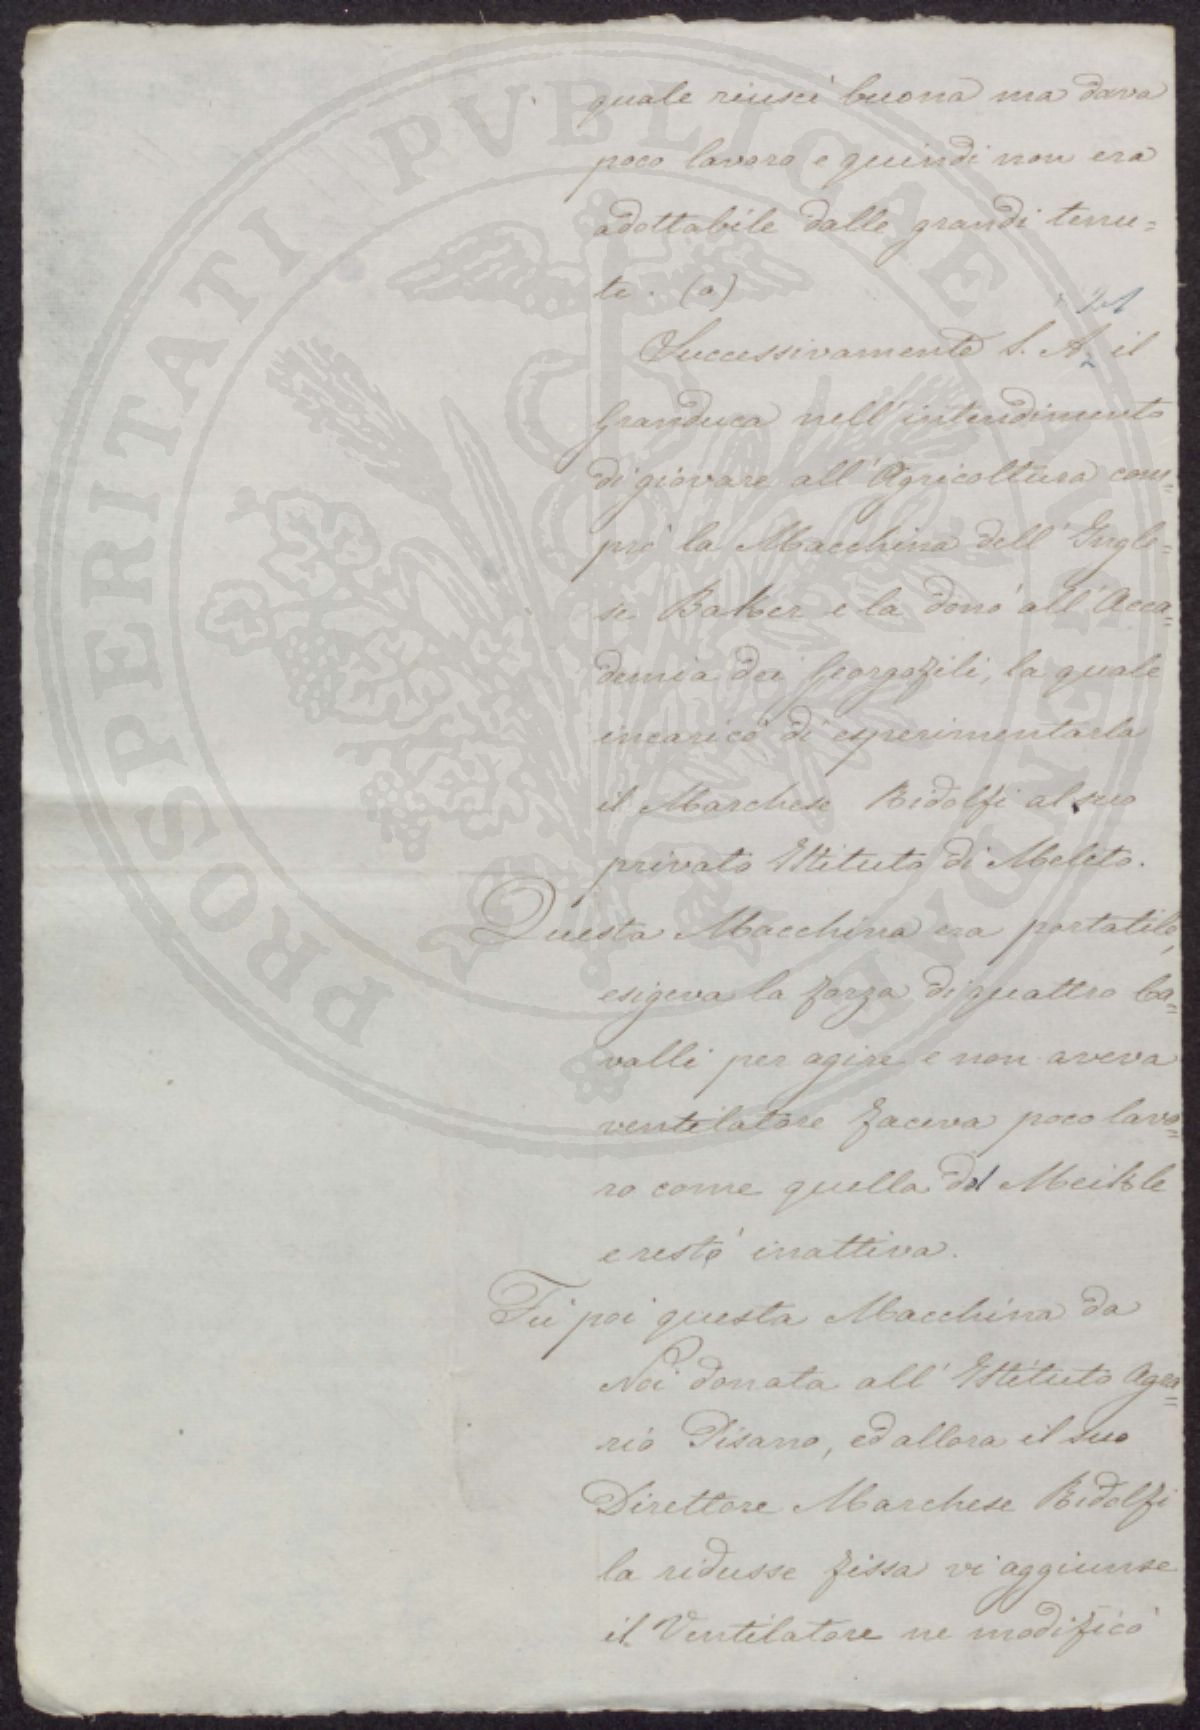 quale riuscì buona ma dava
poco lavoro e quindi non era
adottabile dalle grandi tenu=
te. (a)
Successivamente S. A. il
Granduca nell'intendimento
di giovare all'Agricoltura com=
prò la Macchina dell'Ingle=
se Baker e la donò all'Acca=
demia dei Georgofili, la quale
incaricò di esperimentarla
il Marchese Ridolfi al suo
privato Istituto di Meleto.
Questa Macchina era portatile,
esigeva la forza di quattro Ca=
valli per agire e non aveva
ventilatore faceva poco lavo=
ro come quella del Meikle
e restò inattiva.
Fu poi questa Macchina da
Noi donata all'Istituto Agra=
rio Pisano, ed allora il suo
Direttore Marchese Ridolfi
la ridusse fissa vi aggiunse
il Ventilatore ne modificò
PROSPERITATI PVBLICAE AVGENDAE